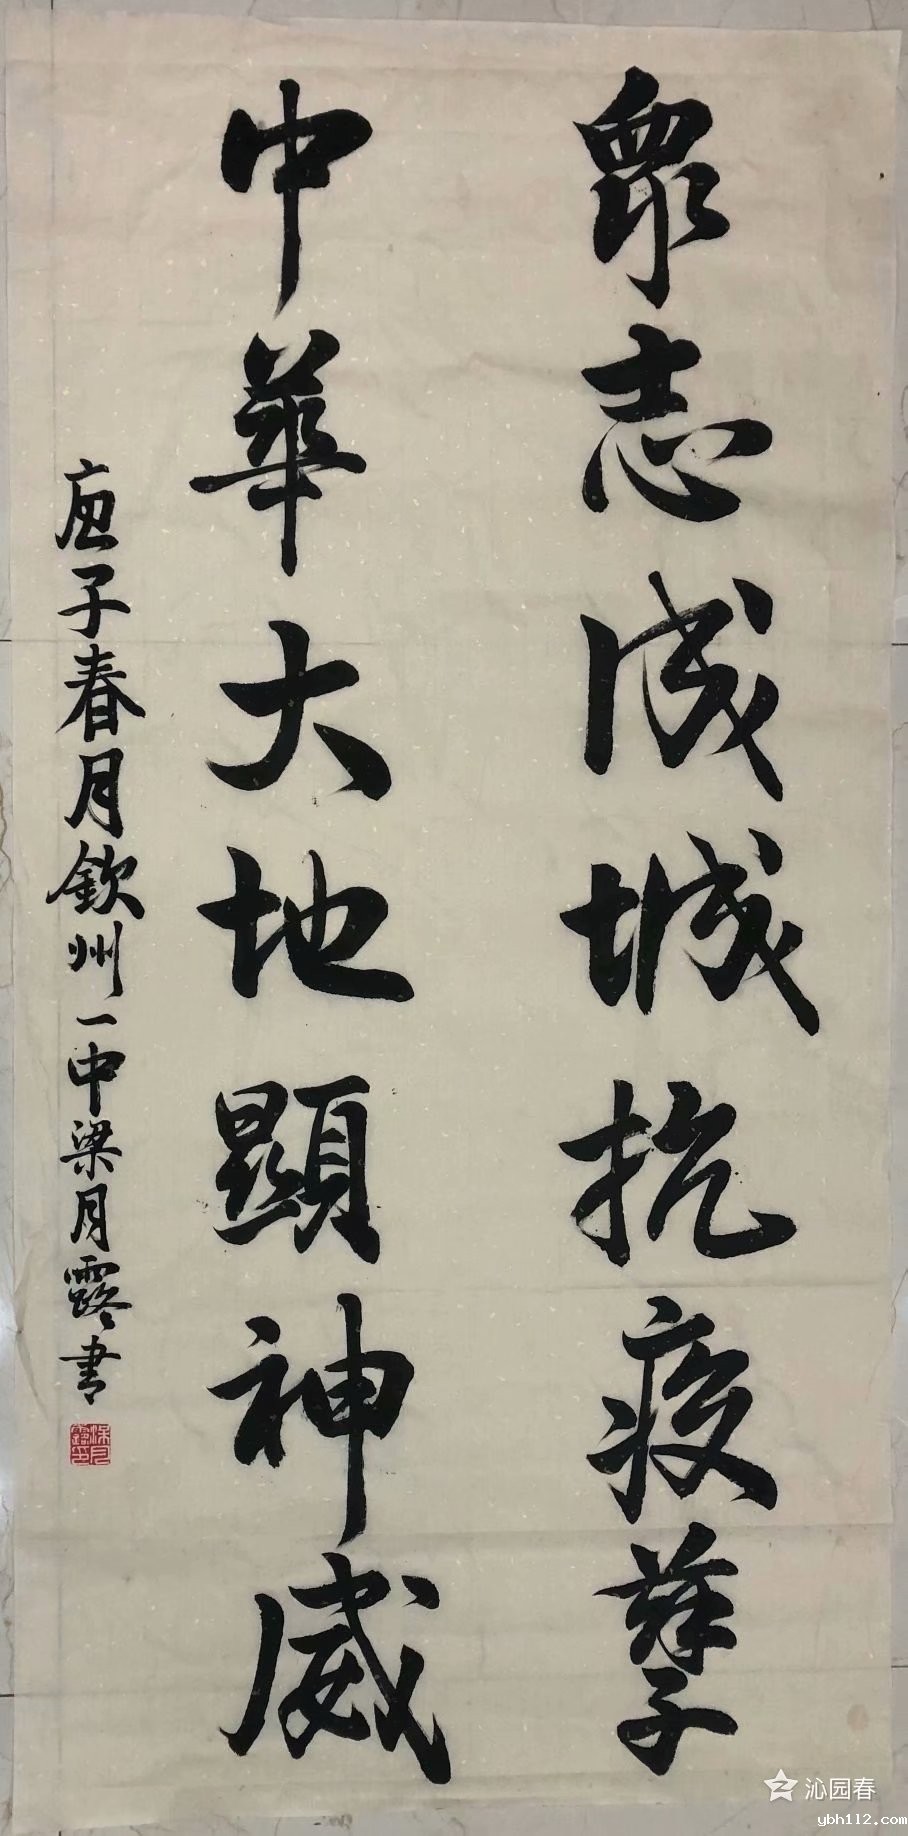 眾志成城抗疫孽
中華大地顯神威
庚子春月欽州一中梁月露書
沁园春
ybh112.com